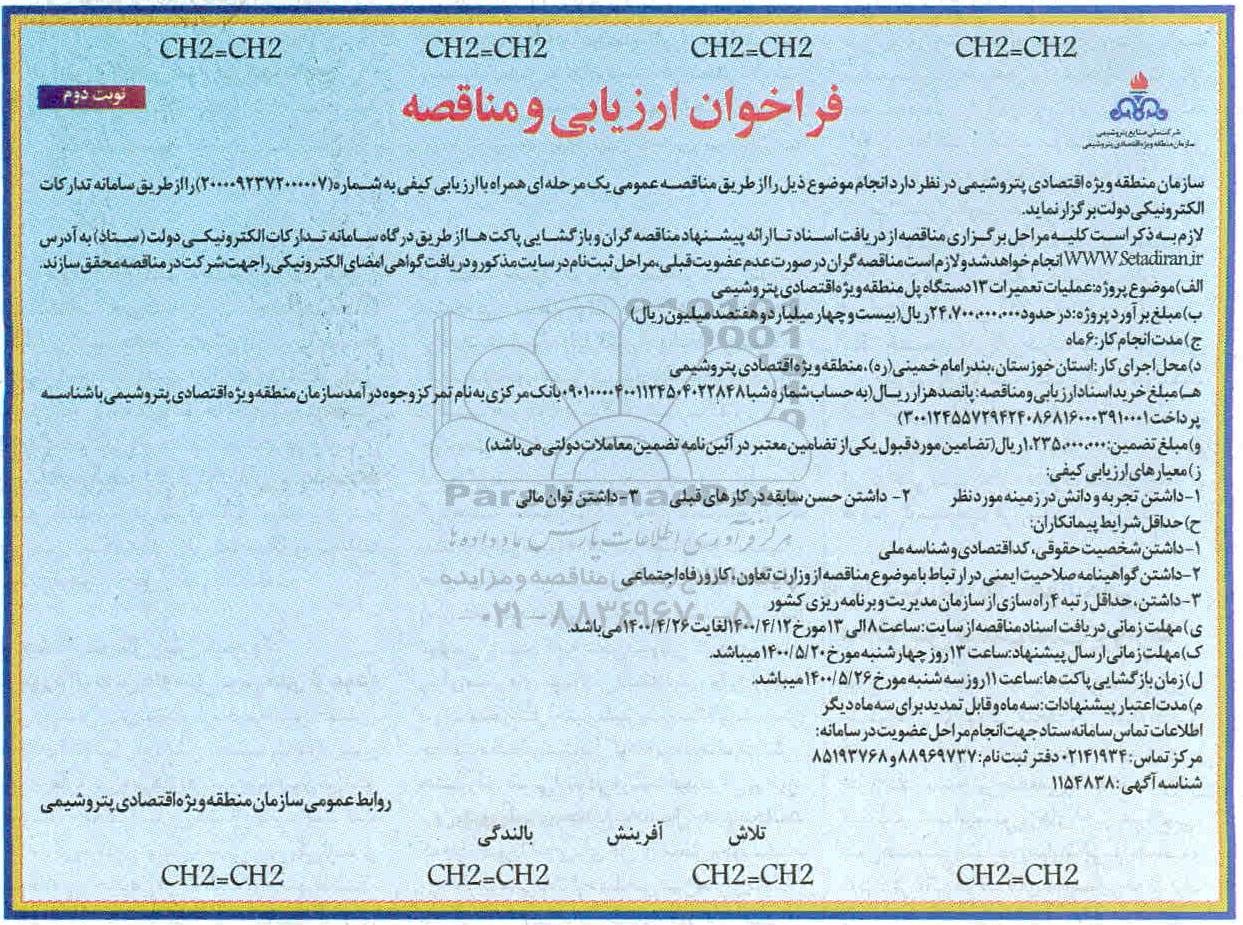 CH2=CH2 CH2=CH2 CH2=CH2 CH2=CH2
نوبت دوم
فراخوان ارزیابی و مناقصه
شرکت ملی صنایع پتروشیمی
سازمان منطقه ویژه اقتصادی پتروشیمی
سازمان منطقه ویژه اقتصادی پتروشیمی در نظر دارد انجام موضوع ذیل را از طریق مناقصه عمومی یک مرحله ای همراه با ارزیابی کیفی به شماره (۲۰۰۰۰۹۲۳۷۲۰۰۰۰۰۷) را از طریق سامانه تدارکات
الکترونیکی دولت برگزار نماید.
لازم به ذکر است کلیه مراحل برگزاری مناقصه از دریافت اسناد تا ارائه پیشنهاد مناقصه گران و بازگشایی پاکت ها از طریق درگاه سامانه تدارکات الکترونیکی دولت (ستاد) به آدرس
WWW.Setadiran.ir انجام خواهد شد و لازم است مناقصه گران در صورت عدم عضویت قبلی، مراحل ثبت نام در سایت مذکور و دریافت گواهی امضای الکترونیکی را جهت شرکت در مناقصه محقق سازند.
الف) موضوع پروژه: عملیات تعمیرات ۱۳ دستگاه پل منطقه ویژه اقتصادی پتروشیمی
ب) مبلغ برآورد پروژه: در حدود ۲۴،۷۰۰،۰۰۰،۰۰۰ ریال (بیست و چهار میلیارد و هفتصد میلیون ریال)
ج) مدت انجام کار: ۶ ماه
د) محل اجرای کار: استان خوزستان، بندر امام خمینی (ره)، منطقه ویژه اقتصادی پتروشیمی
هـ) مبلغ خرید اسناد ارزیابی و مناقصه: پانصد هزار ریال (به حساب شماره شبا ۰۹۰۱۰۰۰۰۴۰۰۱۱۲۴۵۰۴۰۲۲۸۴۸ بانک مرکزی به نام تمرکز وجوه درآمد سازمان منطقه ویژه اقتصادی پتروشیمی با شناسه
پرداخت ۳۰۰۱۲۴۵۵۷۲۹۴۲۴۰۸۶۸۱۶۰۰۰۳۹۱۰۰۰۱)
و) مبلغ تضمین: ۱،۲۳۵،۰۰۰،۰۰۰ ریال (تضامین مورد قبول یکی از تضامین معتبر در آئین نامه تضمین معاملات دولتی می باشد)
ز) معیارهای ارزیابی کیفی:
۱- داشتن تجربه و دانش در زمینه مورد نظر ۲- داشتن حسن سابقه در کارهای قبلی ۳- داشتن توان مالی
ح) حداقل شرایط پیمانکاران:
۱- داشتن شخصیت حقوقی، کد اقتصادی و شناسه ملی
۲- داشتن گواهینامه صلاحیت ایمنی در ارتباط با موضوع مناقصه از وزارت تعاون، کار و رفاه اجتماعی
۳- داشتن، حداقل رتبه ۴ راه سازی از سازمان مدیریت و برنامه ریزی کشور
ی) مهلت زمانی دریافت اسناد مناقصه از سایت: ساعت ۸ الی ۱۳ مورخ ۱۴۰۰/۴/۱۲ لغایت ۱۴۰۰/۴/۲۶ می باشد.
ک) مهلت زمانی ارسال پیشنهاد: ساعت ۱۳ روز چهارشنبه مورخ ۱۴۰۰/۵/۲۰ میباشد.
ل) زمان بازگشایی پاکت ها: ساعت ۱۱ روز سه شنبه مورخ ۱۴۰۰/۵/۲۶ میباشد.
م) مدت اعتبار پیشنهادات: سه ماه و قابل تمدید برای سه ماه دیگر
اطلاعات تماس سامانه ستاد جهت انجام مراحل عضویت در سامانه:
مرکز تماس: ۰۲۱۴۱۹۳۴ دفتر ثبت نام: ۸۸۹۶۹۷۳۷ و ۸۵۱۹۳۷۶۸
شناسه آگهی: ۱۱۵۴۸۳۸
روابط عمومی سازمان منطقه ویژه اقتصادی پتروشیمی
تلاش آفرینش بالندگی
CH2=CH2 CH2=CH2 CH2=CH2 CH2=CH2